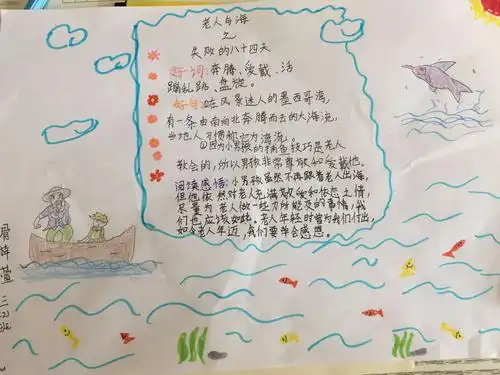 老人与海
之
失败的八十四天
好词:奔腾、爱戴、活
蹦乱跳、盘旋。
好句:在风景迷人的墨西哥湾,
有一条由南向北奔腾而去的大海流,
当地人习惯称它为湾流。
①因为小男孩的捕鱼技巧是老人
教会的,所以男孩非常尊敬和爱戴他。
阅读感悟:小男孩虽然不再跟着老人出海,
但他依然对老人充满敬爱和怀念之情,
尽量为老人做一些力所能及的事情,我
们也应该如此。老人年轻时曾为我们付出,
如今老人年迈,我们要学会感恩。
三
(2)
班